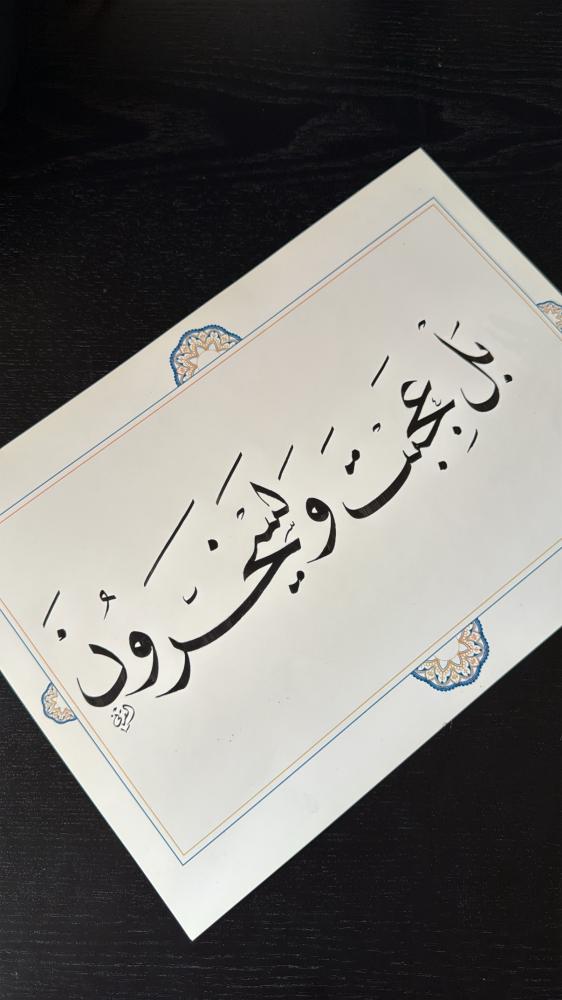 بَلْ عَجِبْتَ وَيَسْخَرُونَ